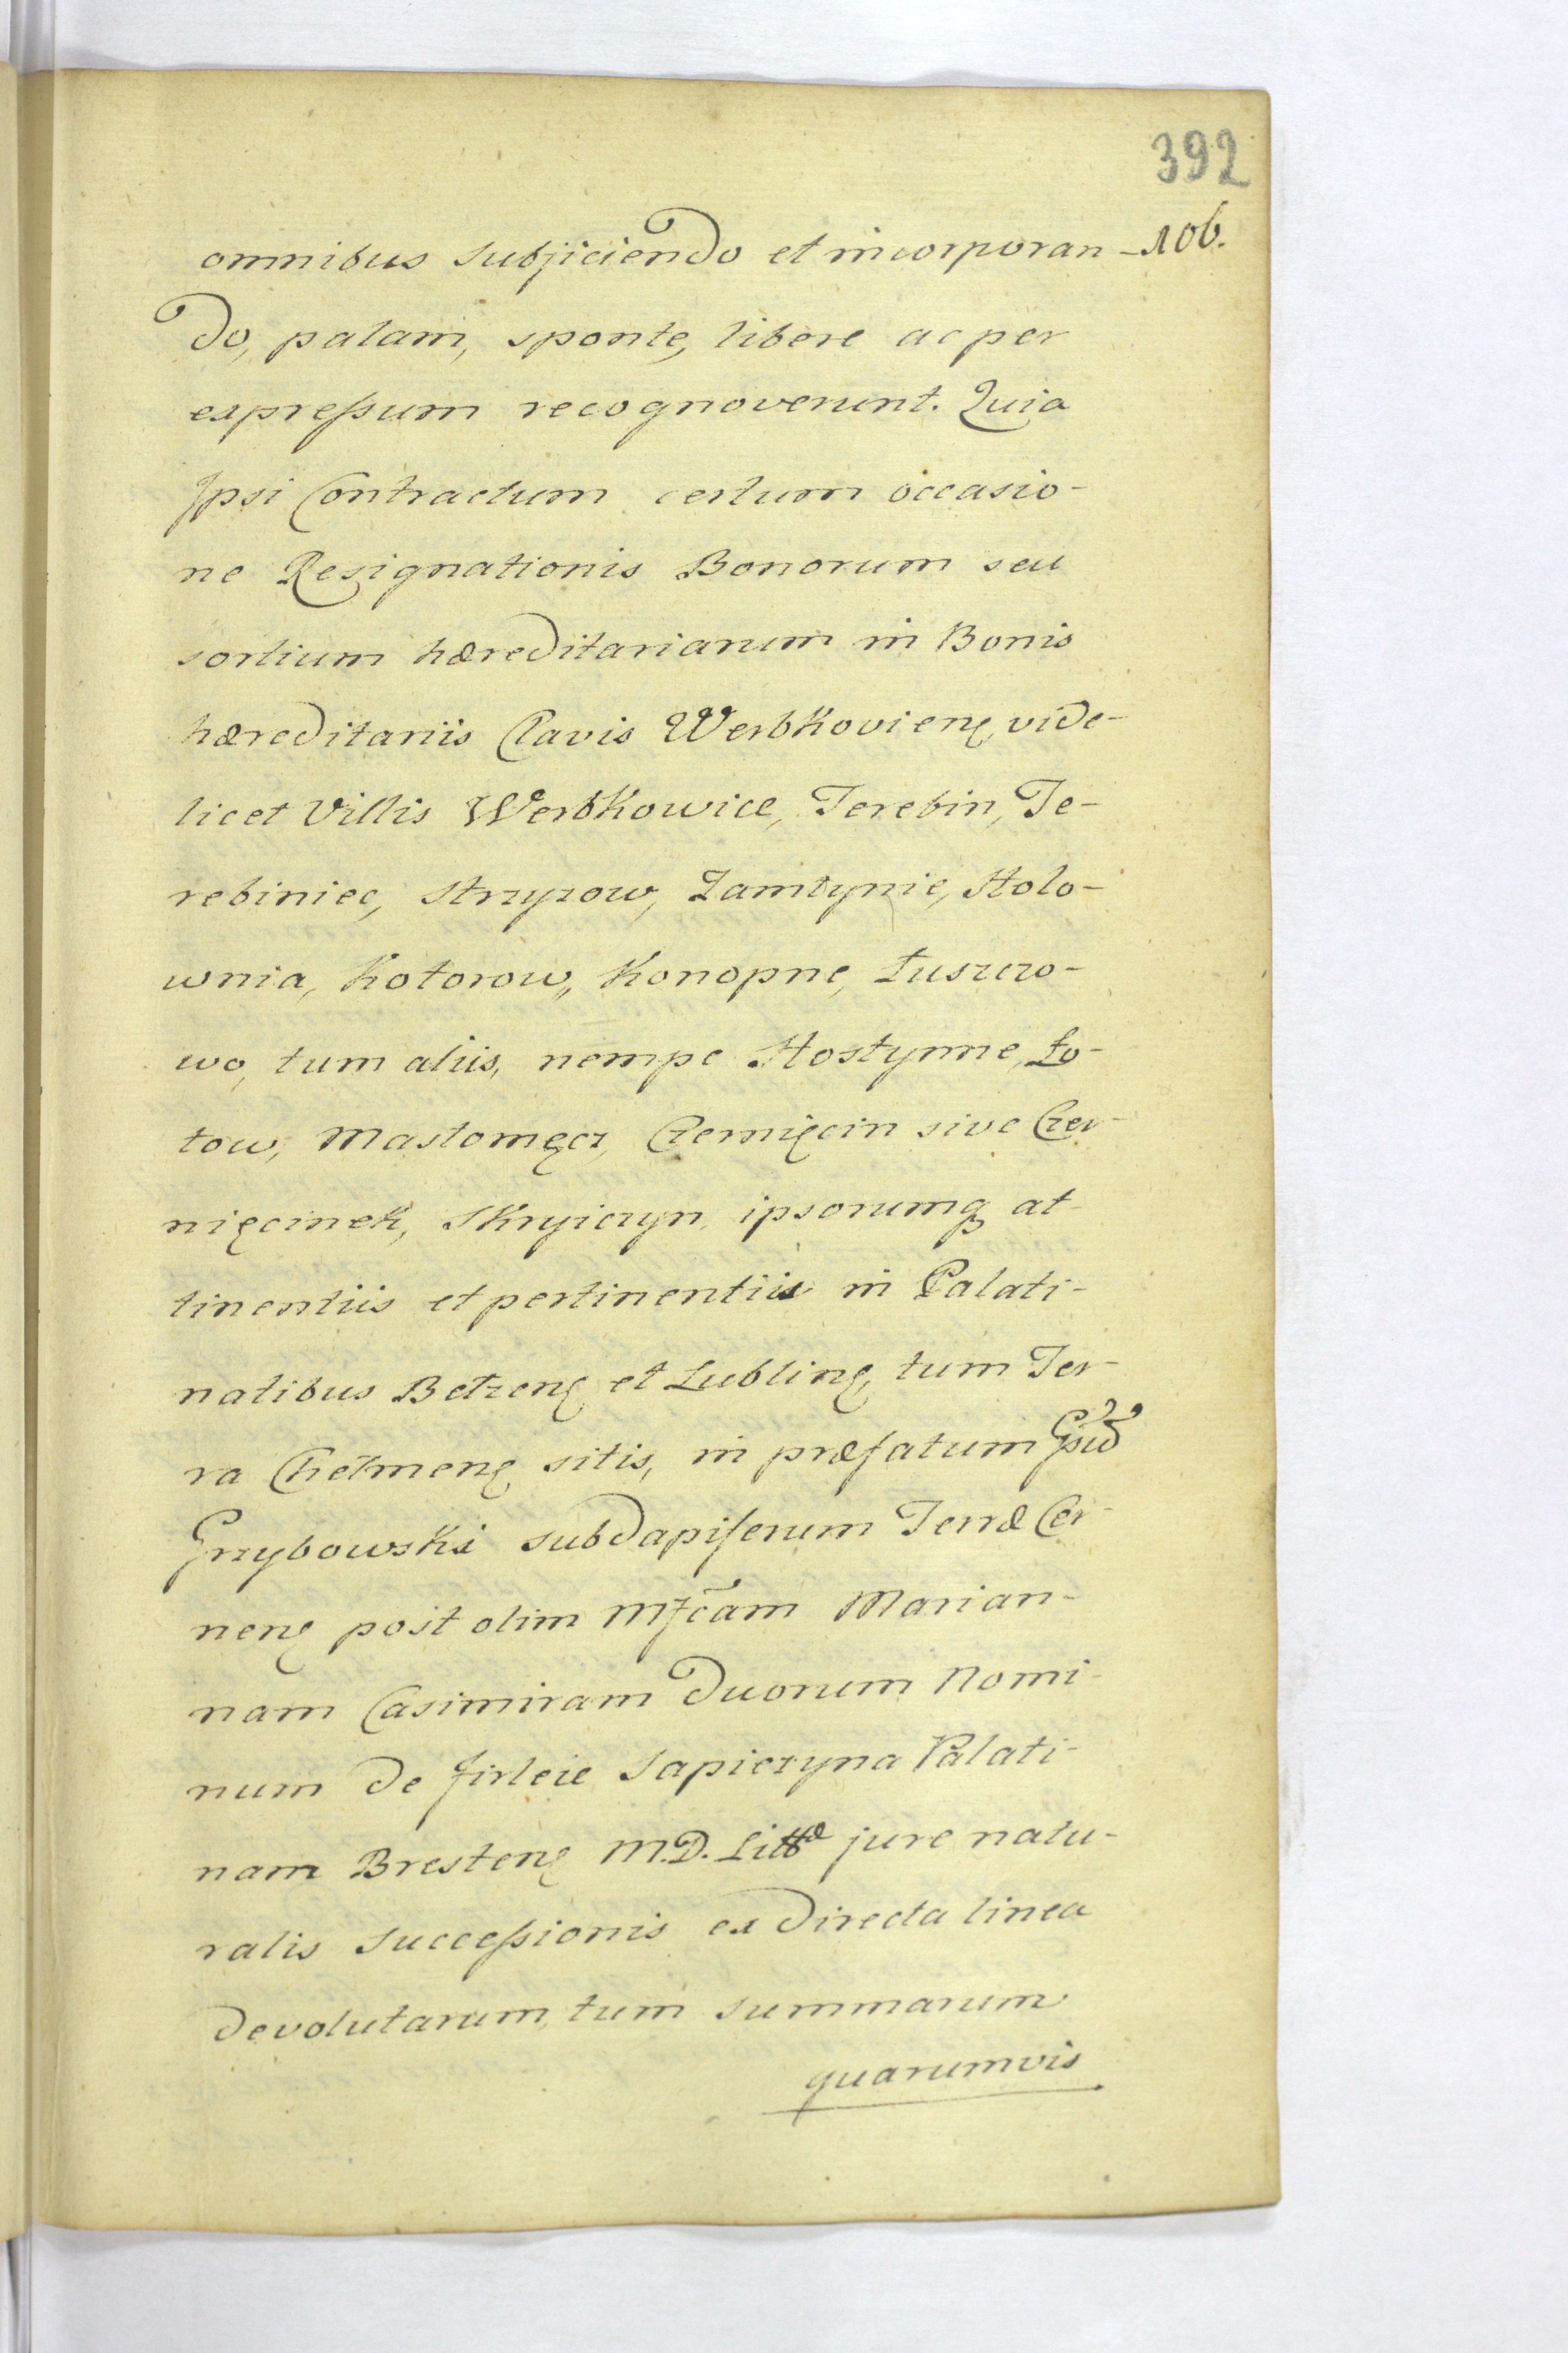 392
106.
omnibus subjiciendo et incorporan-
do, palam, sponte, libere ac per
expressum recognoverunt. Quia
Ipsi Contractum certum occasio-
ne Resignationis Bonorum seu
sortium hæreditariarum in Bonis
hæreditariis Clavis Werbkovieñ, vide-
licet Villis Werbkowice, Terebin, Te-
rebiniec, Strzyzow, Zamłynie, Holo-
wnia, Kotorow, Konopne, Łuszczo-
wo, tum aliis, nempe Hostynne, Ło-
tow, Masłomęcz, Czernięcin sive Czer-
nięcinek, Skryiczyn, ipsorumq; at-
tinentiis et pertinentiis in Palati-
natibus Bełzenʒ et Lublinʒ, tum Ter-
ra Chełmenʒ sitis, in præfatum Gsud
Grzybowski subdapiferum Terræ Cer-
nenʒ post olim Mfcam Marian-
nam Casimiram duorum Nomi-
num de Firleie Sapieżyna Palati-
nam Brestenʒ M.D. Littæ jure natu-
ralis successionis ex directa linea
devolutarum, tum summarum
quarumvis